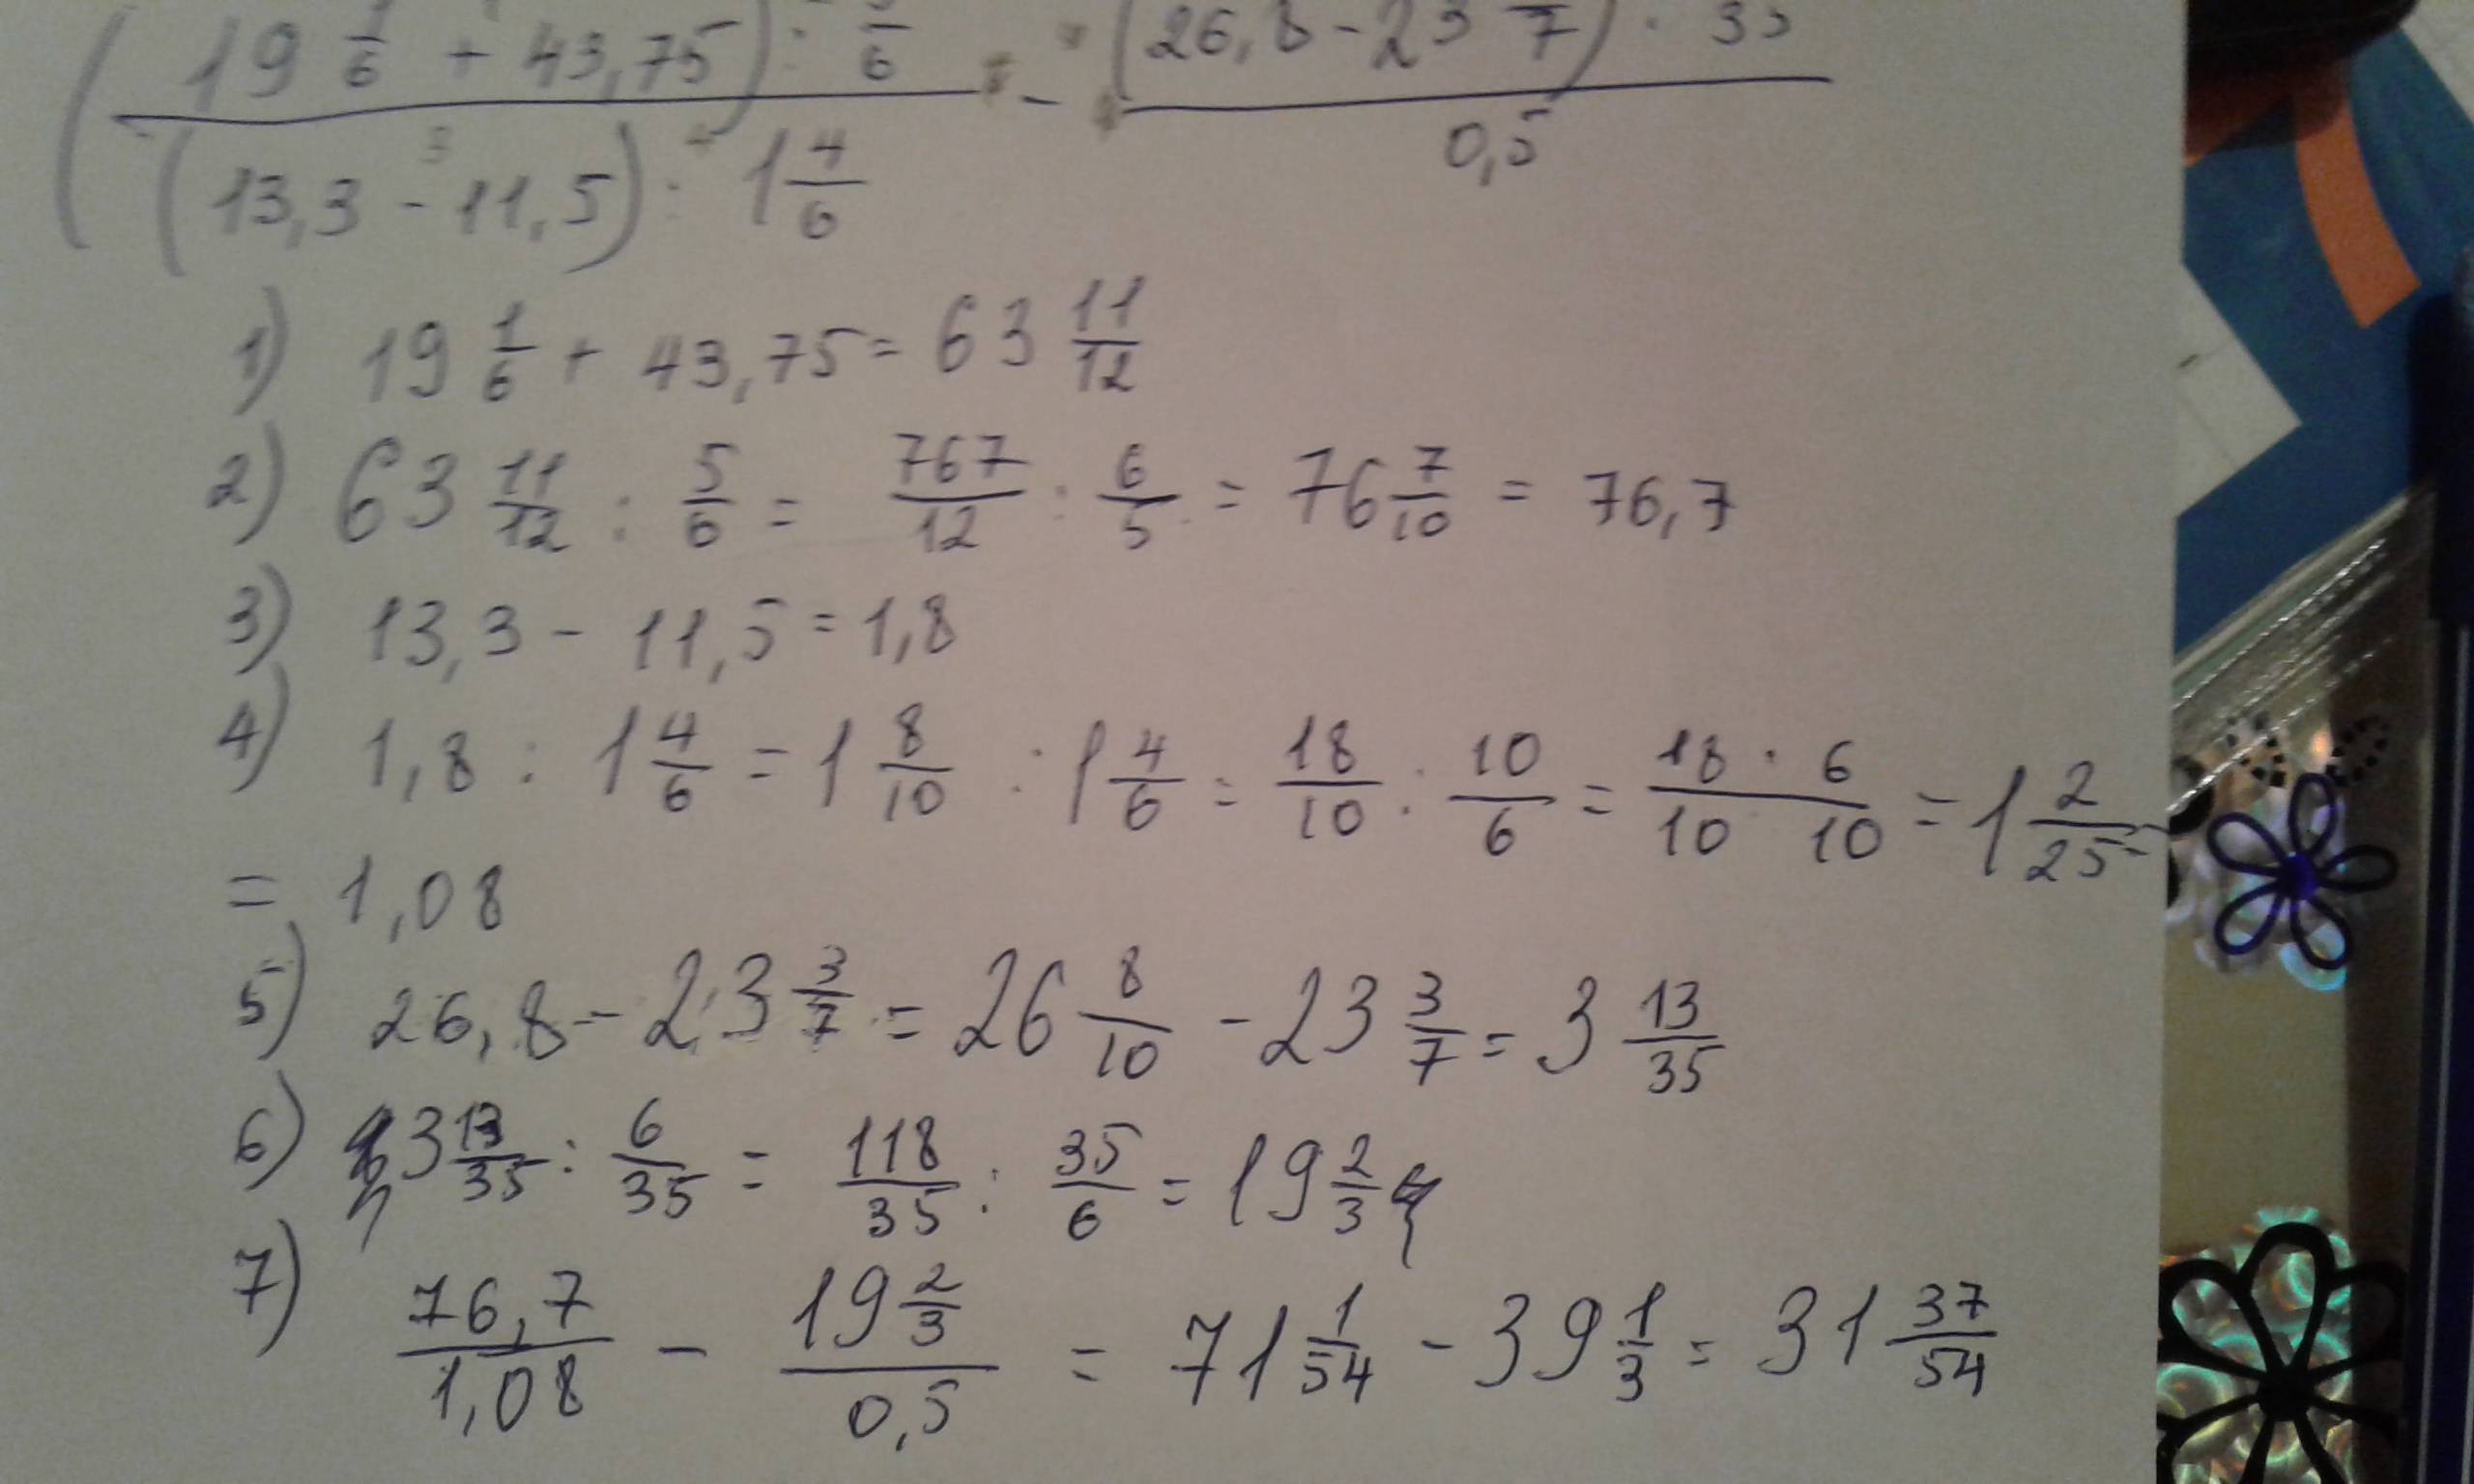 (19 1/6 + 43,75) : 5/6 - (26,8 - 23 3/7) : 35
(13,3 - 11,5) : 1 4/6 0,5
1) 19 1/6 + 43,75 = 63 11/12
2) 63 11/12 : 5/6 = 767/12 : 6/5 = 76 7/10 = 76,7
3) 13,3 - 11,5 = 1,8
4) 1,8 : 1 4/6 = 1 8/10 : 1 4/6 = 18/10 : 10/6 = 18 · 6/10 10 = 1 2/25
= 1,08
5) 26,8 - 23 3/7 = 26 8/10 - 23 3/7 = 3 13/35
6) 3 13/35 : 6/35 = 118/35 : 35/6 = 19 2/3
7) 76,7/1,08 - 19 2/3/0,5 = 71 1/54 - 39 1/3 = 31 37/54